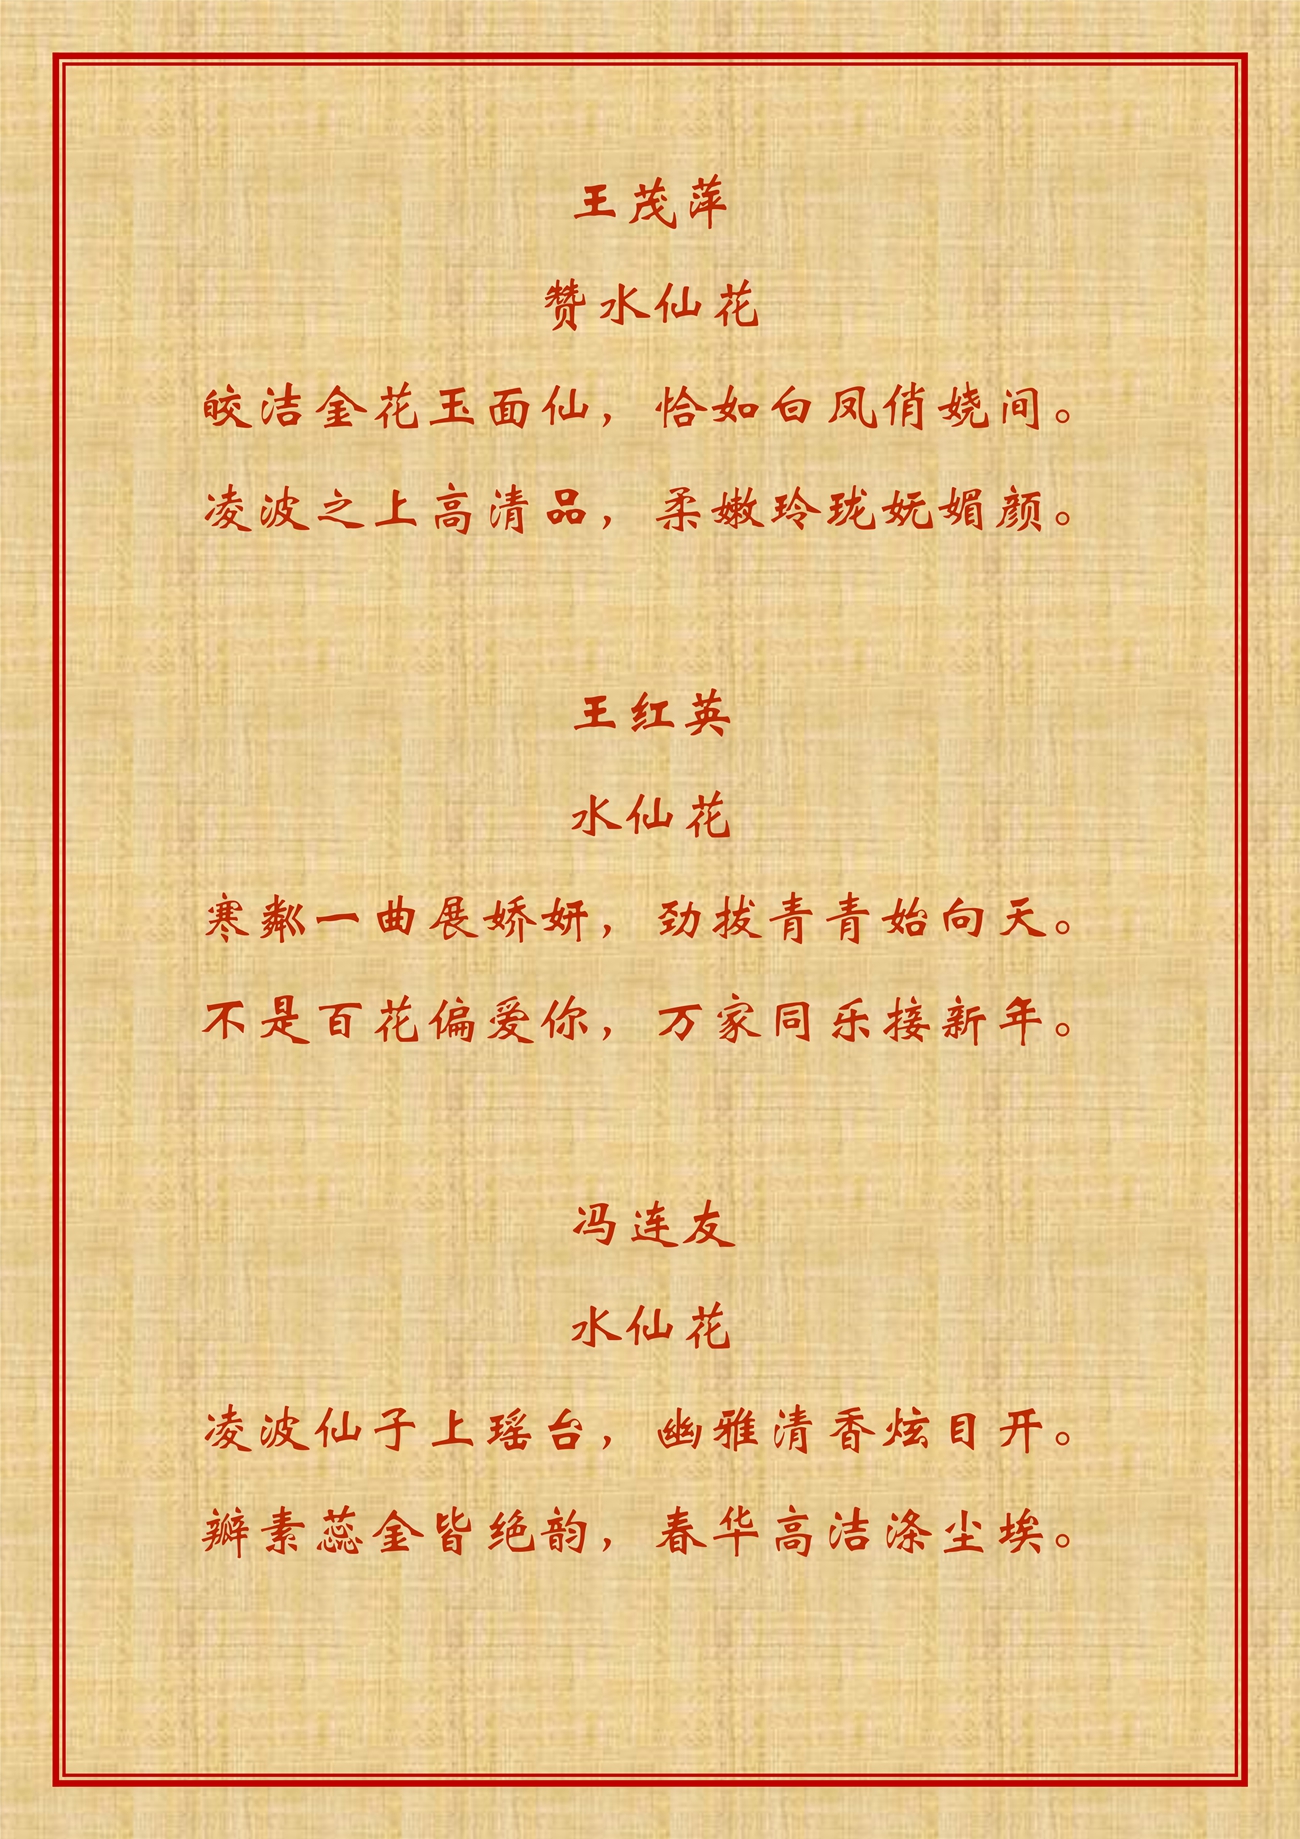 王茂萍
赞水仙花
皎洁金花玉面仙，恰如白凤俏娆间。
凌波之上高清品，柔嫩玲珑妩媚颜。
王红英
水仙花
寒粼一曲展娇妍，劲拔青青始向天。
不是百花偏爱你，万家同乐接新年。
冯连友
水仙花
凌波仙子上瑶台，幽雅清香炫目开。
瓣素蕊金皆绝韵，春华高洁涤尘埃。